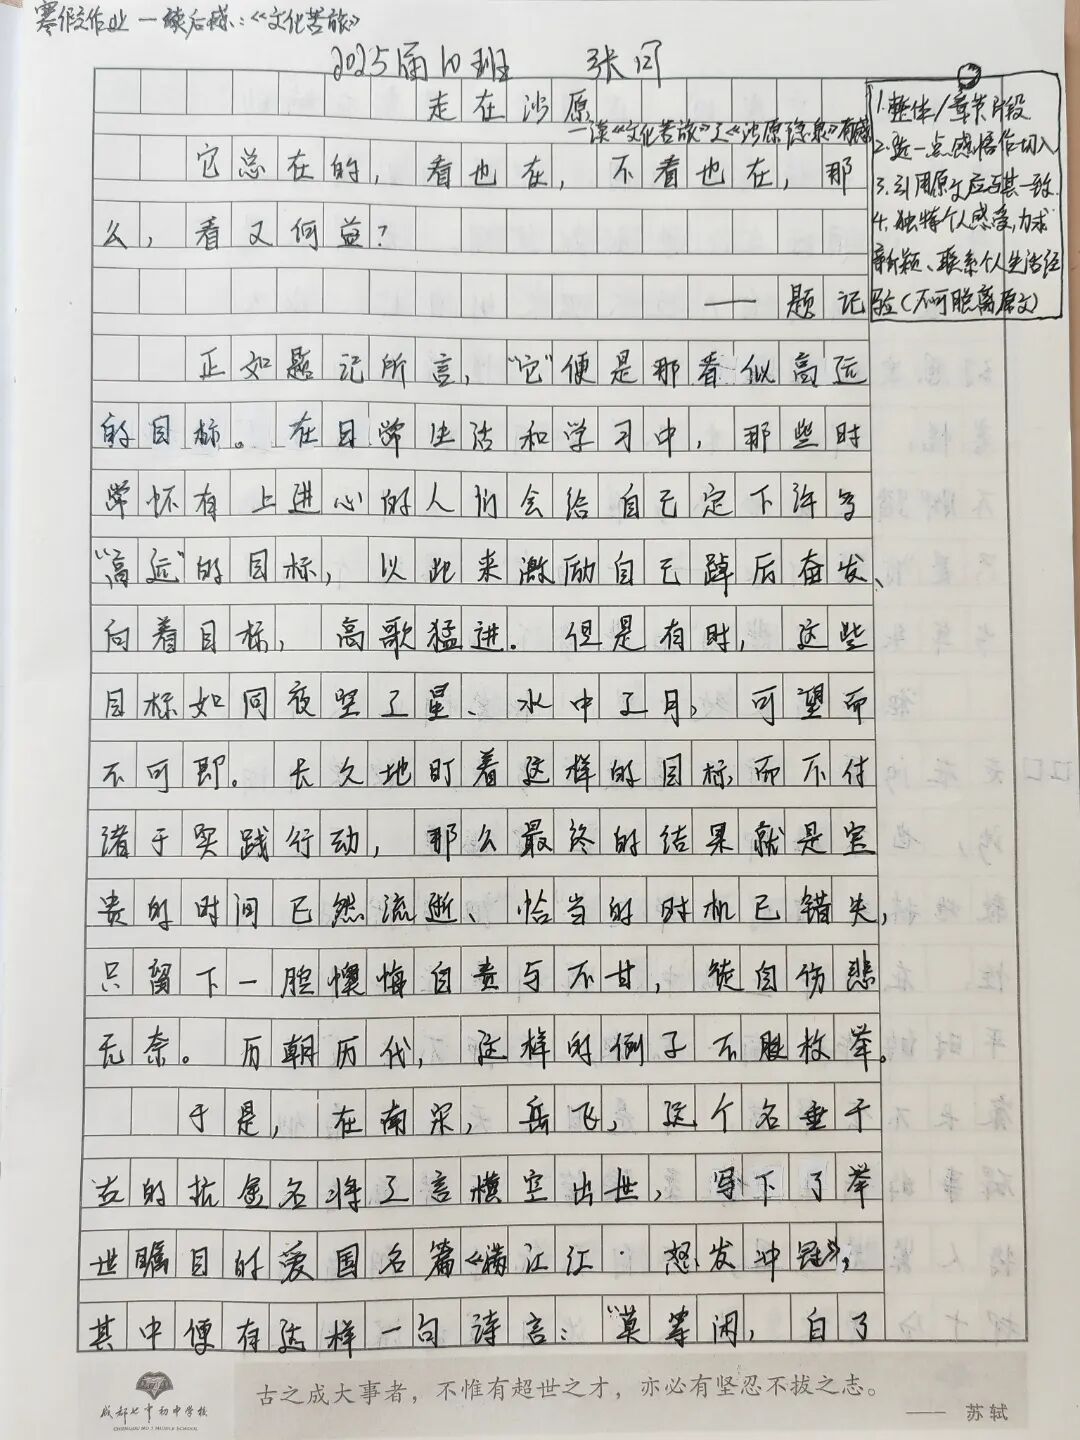 寒假作业—读后感:《文化苦旅》
2025届10班 张问
走在沙原
—读《文化苦旅》之《沙原隐泉》有感
1.整体/章节片段
2.选一点感悟作切入
3.引用原文应与其一致.
4.独特个人感受,力求
新颖、联系个人生活经
验(不可脱离原文)
它总在的,看也在,不看也在,那
么,看又何益?
——题记
正如题记所言,“它”便是那看似高远
的目标。在日常生活和学习中,那些时
常怀有上进心的人们会给自己定下许多
“高远”的目标,以此来激励自己踔厉奋发、
向着目标,高歌猛进.但是有时,这些
目标如同夜空之星、水中之月,可望而
不可即。长久地盯着这样的目标,而不付
诸于实践行动,那么最终的结果就是宝
贵的时间已然流逝、恰当的时机已错失,
只留下一腔懊悔自责与不甘,徒自伤悲
无奈。历朝历代,这样的例子不胜枚举。
于是,在南宋,岳飞,这个名垂千
古的抗金名将之言横空出世,写下了举
世瞩目的爱国名篇《满江红·怒发冲冠》,
其中便有这样一句诗言:“莫等闲,白了
成都七中初中学校
CHENGDU NO.7 MIDDLE SCHOOL
古之成大事者,不惟有超世之才,亦必有坚忍不拔之志。
—— 苏轼